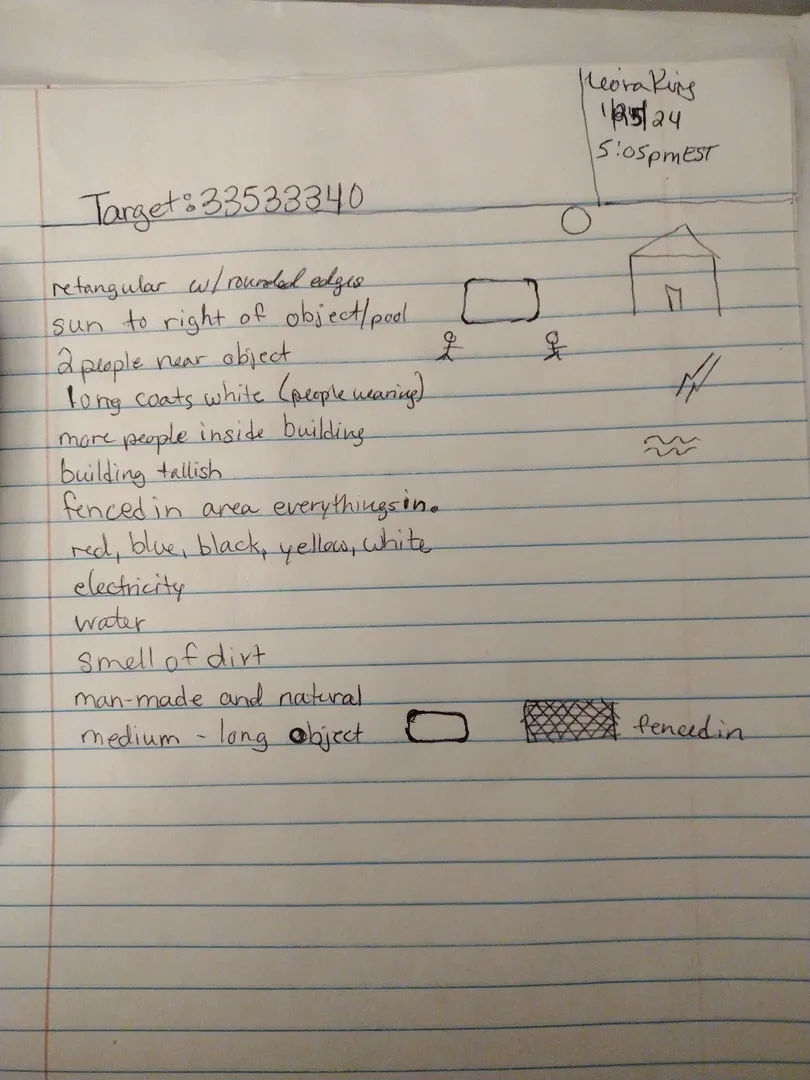 Leora King
1/25/24
5:05pm EST
Target: 33533340
retangular w/rounded edges
sun to right of object/pool
2 people near object
long coats white (people wearing)
more people inside building
building tallish
fenced in area everythings in.
red, blue, black, yellow, white
electricity
water
smell of dirt
man-made and natural
medium - long object
fenced in